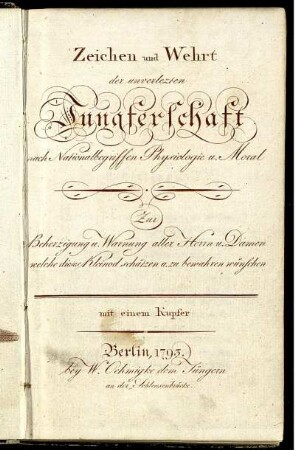 Zeichen und Wehrt
der unverlezten
Jungferschaft
nach Nationalbegriffen Physiologie u. Moral
Zur
Beherzigung u. Warnung aller Herrn u. Damen
welche dieses Kleinod schätzen u. zu bewahren wünschen
mit einem Kupfer
Berlin, 1793.
bey W. Oehmigke dem Jüngern
an der Schleusenbrücke.